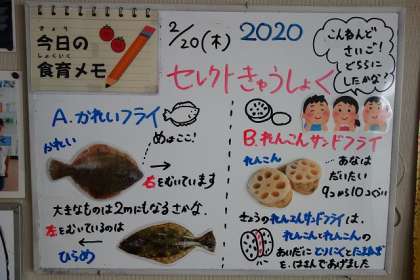 きょう
今日の
しょくいく
食育メモ
2/20(木) 2020
こんねんど
さいご!
どちらに
したかな?
セレクトきゅうしょく
A.かれいフライ
めはここ!
かれい
右をむいています
大きなものは2mにもなるさかな。
左をむいているのは
ひらめ
B.れんこんサンドフライ
れんこん
あなは
だいたい
9コから10コぐらい
きょうのれんこんサンドフライは、
れんこんとれんこんの
あいだにとりにくとたまねぎ
を、はさんであげました